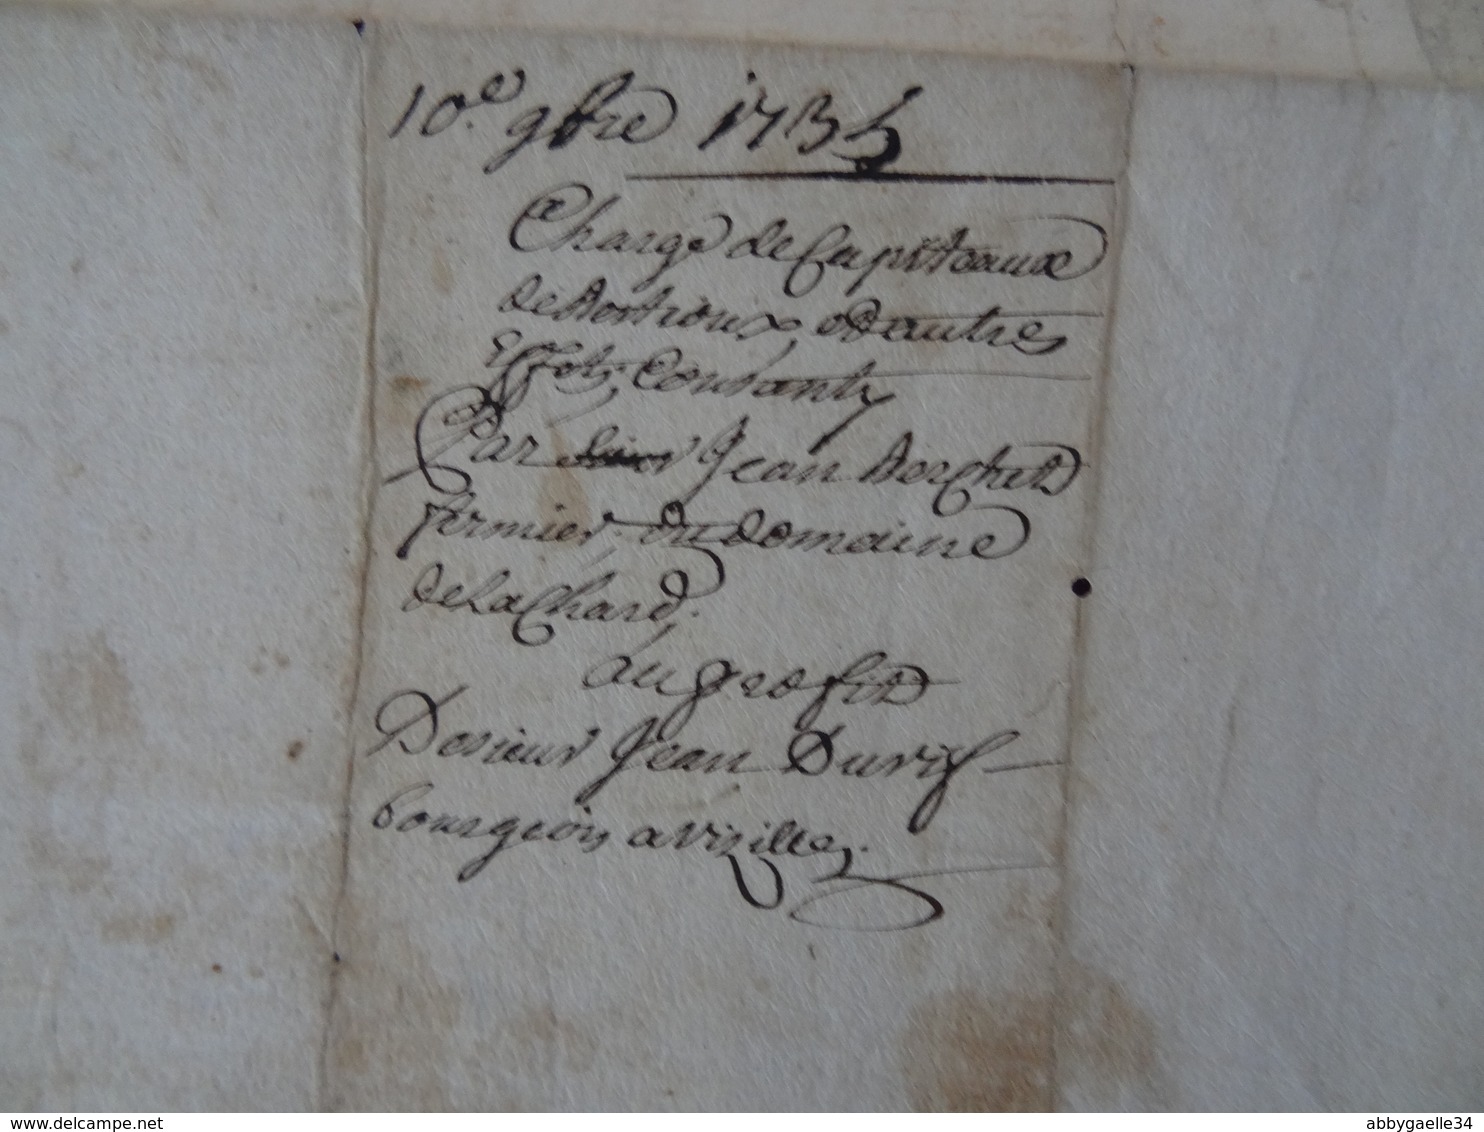 10.e 9bre 1735
Charge de Capiteaux
de Bestioux, et autres
Effets, Constants
Par Jean Berchet
fermier du domaine
de La Chard,
au proffit
De sieur Jean Duvif
bourgeois a vizille.
delcampe.net
abbygaelle34